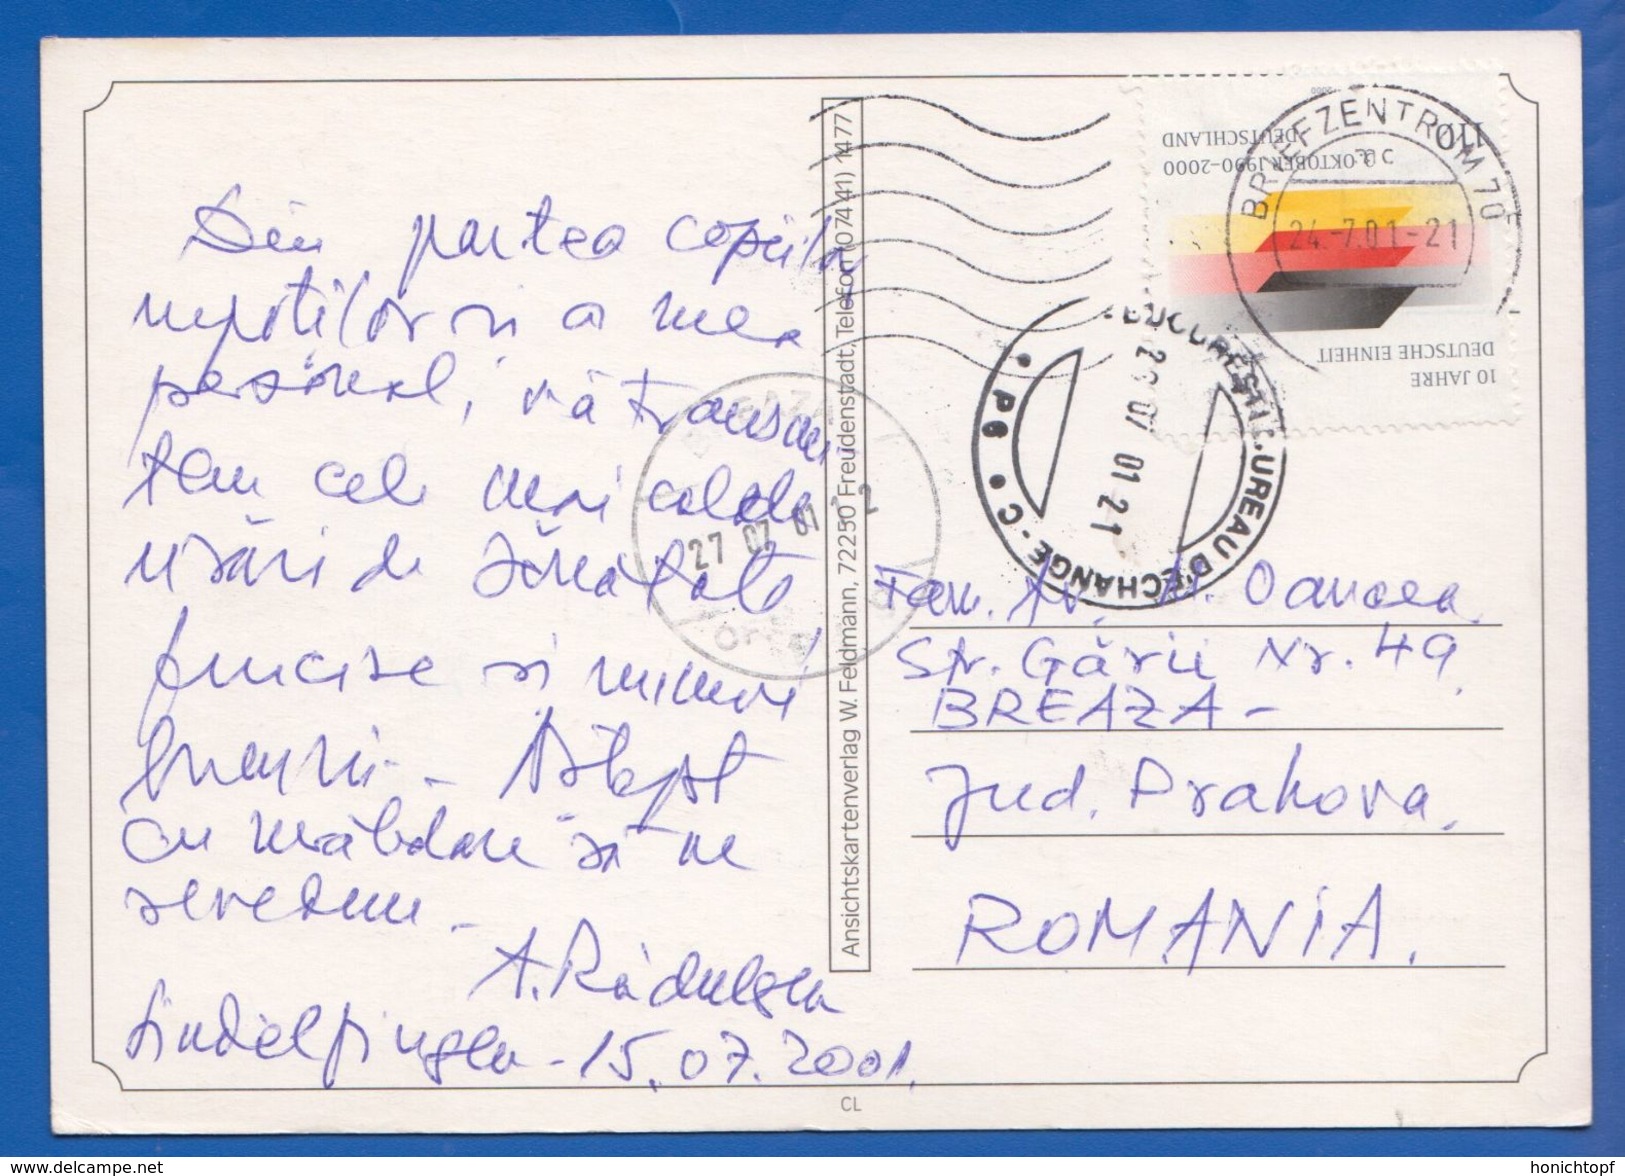 Din partea copiilor
nepotilor si a mea
personal, vă transmi
tem cele mai calde
urări de sănătate
fericire si numai
bucurii. Astept
cu nerăbdare să ne
revedem.
A. Rădulescu
Sindelfingen - 15.07.2001.
Ansichtskartenverlag W. Feldmann, 72250 Freudenstadt, Telefon (07441) 1477
CL
110
DEUTSCHLAND
3. OKTOBER 1990–2000
DEUTSCHE EINHEIT
10 JAHRE
BRIEFZENTRUM 70
24.-7.01-21
BUCURESTI
BUREAU D'ECHANGE
07 01 21
BREAZA
27 07 01
Fam. Av. Oancea
Str. Gării Nr. 49
BREAZA -
Jud. Prahova.
ROMANIA.
www.delcampe.net
honichtopf